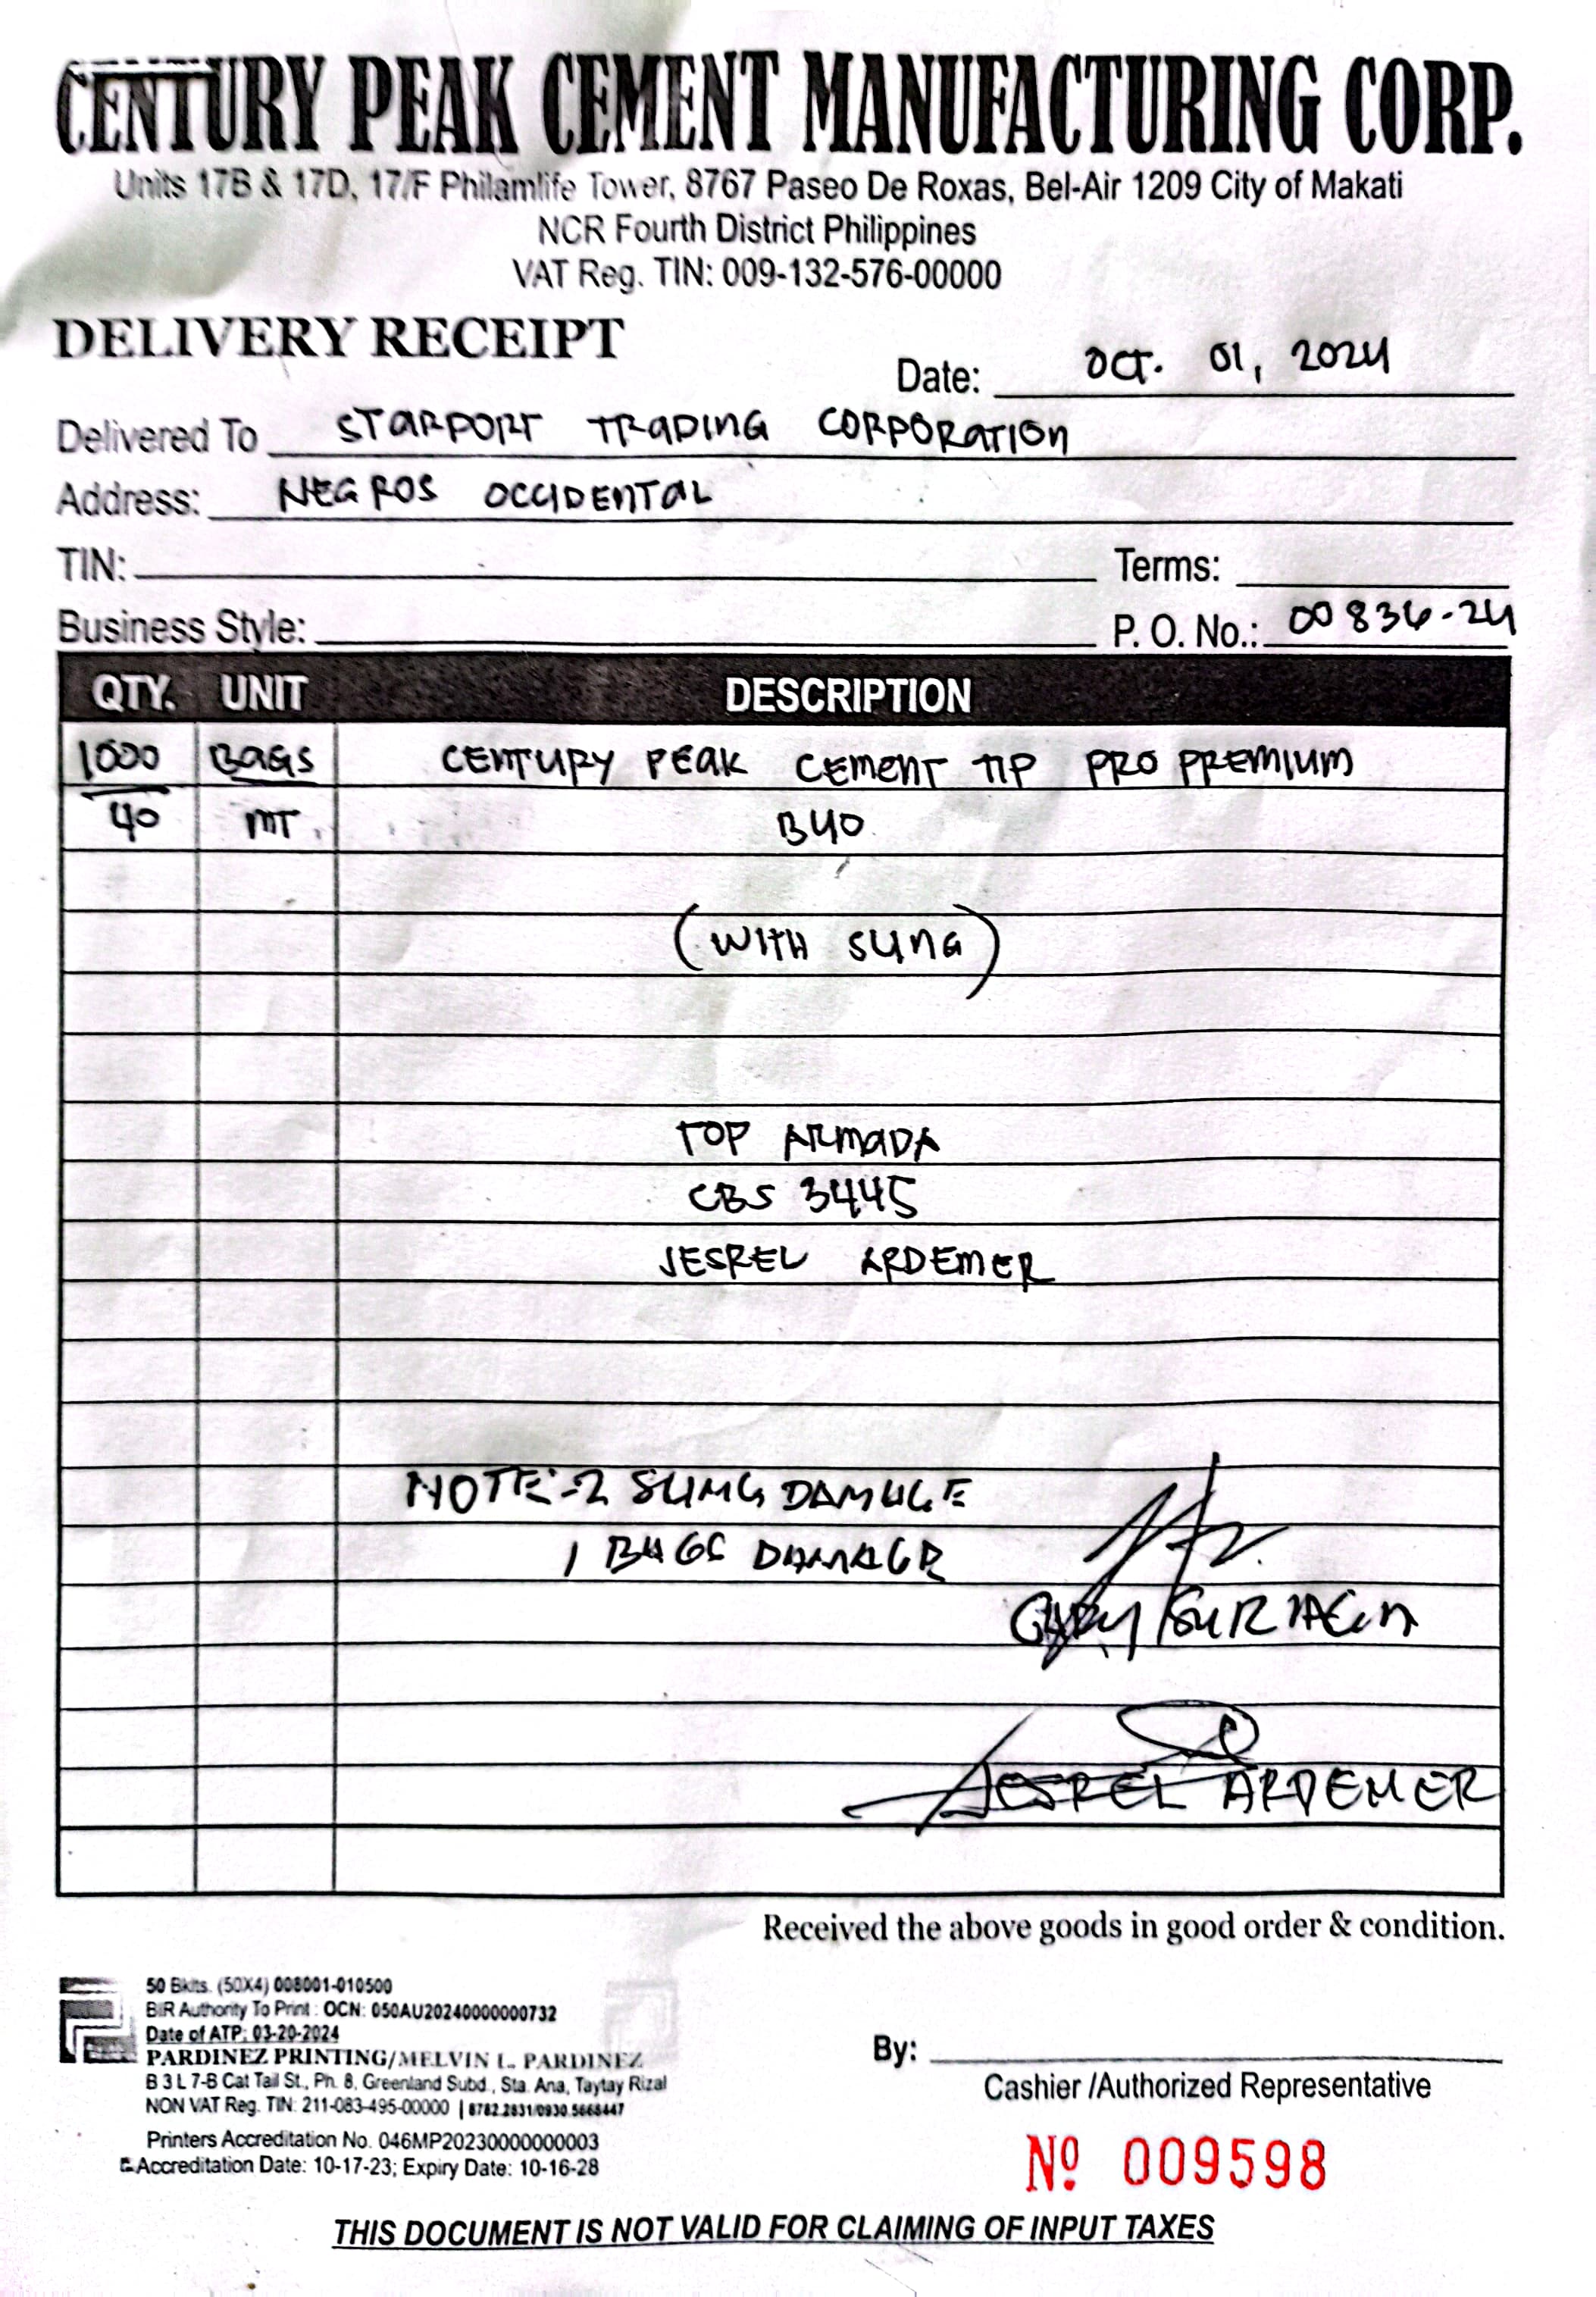 CENTURY PEAK CEMENT MANUFACTURING CORP.
Units 17B & 17D, 17/F Philamlife Tower, 8767 Paseo De Roxas, Bel-Air 1209 City of Makati
NCR Fourth District Philippines
VAT Reg. TIN: 009-132-576-00000
DELIVERY RECEIPT
Date: OCT. 01, 2024
Delivered To STARPORT TRADING CORPORATION
Address: NEGROS OCCIDENTAL
TIN: Terms:
Business Style: P. O. No.: 00836-24
QTY. UNIT DESCRIPTION
1000 BAGS CENTURY PEAK CEMENT TIP PRO PREMIUM
40 MT B40
(WITH SLING)
TOP ARMADA
CBS 3445
JESREL ARDEMER
NOTE: -2 SLING DAMAGE
1 BAGS DAMAGE
GARY
JESREL ARDEMER
Received the above goods in good order & condition.
50 Bkts. (50X4) 008001-010500
BIR Authority To Print : OCN: 050AU20240000000732
Date of ATP: 03-20-2024
PARDINEZ PRINTING/MELVIN L. PARDINEZ
B 3 L 7-B Cat Tail St., Ph. 8, Greenland Subd., Sta. Ana, Taytay Rizal
NON VAT Reg. TIN: 211-083-495-00000 | 8782.2831/0930.5668447
Printers Accreditation No. 046MP20230000000003
Accreditation Date: 10-17-23; Expiry Date: 10-16-28
By:
Cashier /Authorized Representative
Nº 009598
THIS DOCUMENT IS NOT VALID FOR CLAIMING OF INPUT TAXES